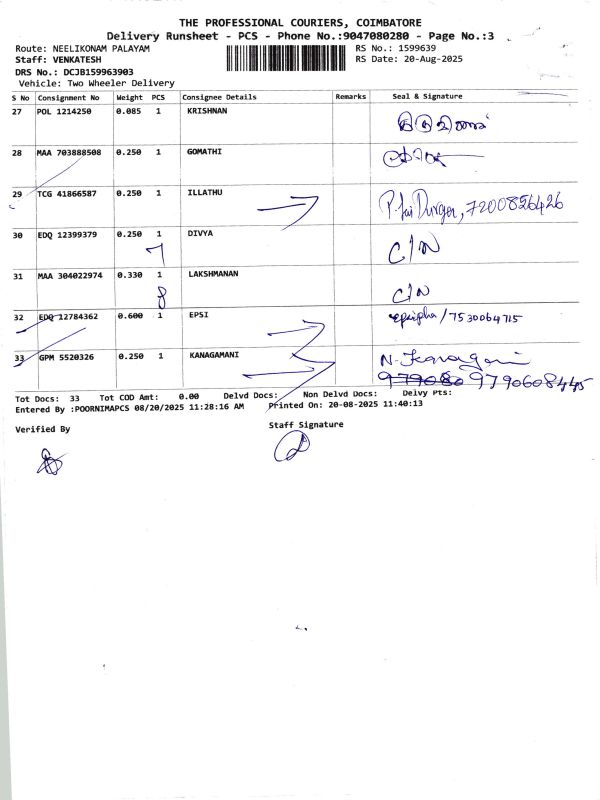 THE PROFESSIONAL COURIERS, COIMBATORE
Delivery Runsheet - PCS - Phone No.:9047080280 - Page No.:3
Route: NEELIKONAM PALAYAM RS No.: 1599639
Staff: VENKATESH RS Date: 20-Aug-2025
DRS No.: DCJB159963903
Vehicle: Two Wheeler Delivery
S No Consignment No Weight PCS Consignee Details Remarks Seal & Signature
27 POL 1214250 0.085 1 KRISHNAN
28 MAA 703888508 0.250 1 GOMATHI
29 TCG 41866587 0.250 1 ILLATHU P. Sai Durga, 7200826426
30 EDQ 12399379 0.250 1 DIVYA C/N
7
31 MAA 304022974 0.330 1 LAKSHMANAN C/N
8
32 EDQ 12784362 0.600 1 EPSI /7530064715
33 GPM 5520326 0.250 1 KANAGAMANI
9790608445
Tot Docs: 33 Tot COD Amt: 0.00 Delvd Docs: Non Delvd Docs: Delvy Pts:
Entered By :POORNIMAPCS 08/20/2025 11:28:16 AM Printed On: 20-08-2025 11:40:13
Verified By Staff Signature